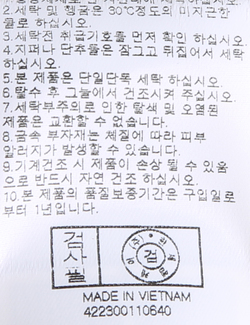 2.세탁 및 헹굼은 30℃정도의 미지근한
물로 하십시오.
3.세탁전 취급기호를 먼저 확인 하십시오.
4.지퍼나 단추들은 잠그고 뒤집어서 세탁
하십시오.
5.본 제품은 단일단독 세탁 하십시오.
6.탈수 후 그늘에서 건조시켜 주십시오.
7.세탁부주의로 인한 탈색 및 오염된
제품은 교환할 수 없습니다.
8.금속 부자재는 체질에 따라 피부
알러지가 발생할 수 있습니다.
9.기계건조 시 제품이 손상 될 수 있음
으로 반드시 자연 건조 하십시오.
10.본 제품의 품질보증기간은 구입일로
부터 1년입니다.
검사필
검
MADE IN VIETNAM
422300110640